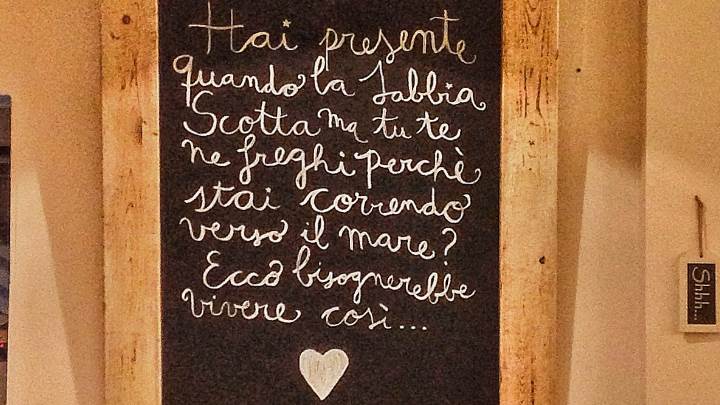 Hai presente
quando la sabbia
Scotta ma tu te
ne freghi perchè
stai correndo
verso il mare?
Ecco bisognerebbe
vivere così...
Shhh...